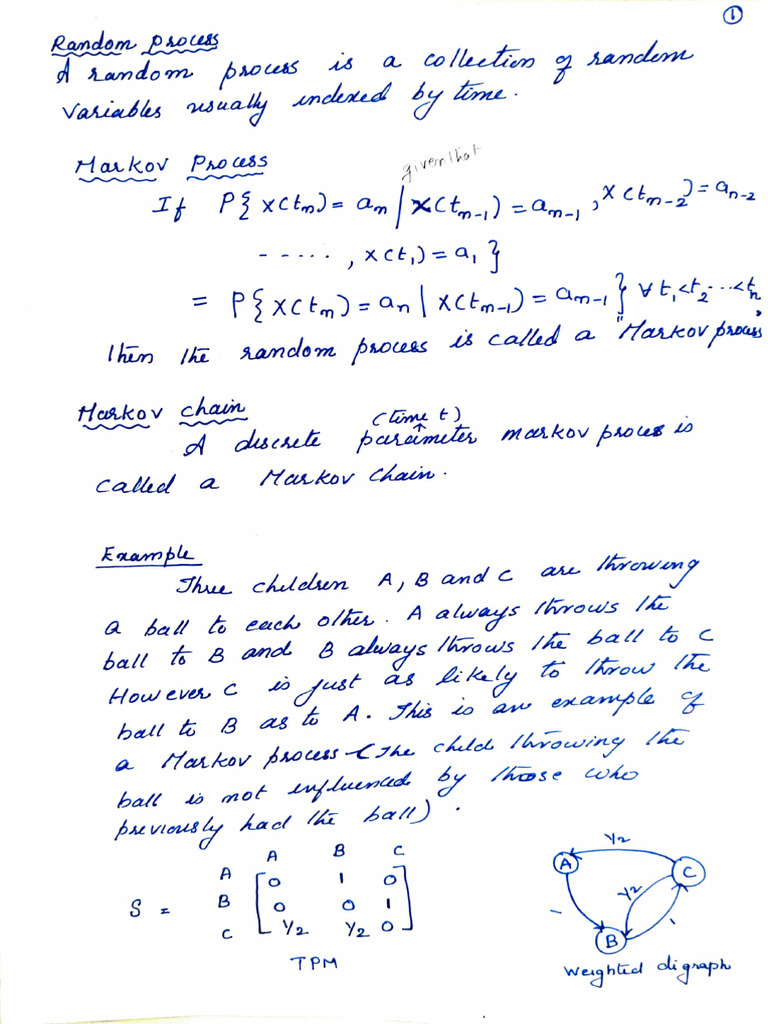 ①
Random process
A random process is a collection of random
variables usually indexed by time.
Markov Process
given that
If P{X(tn) = an / X(tn-1) = an-1, X(tn-2) = an-2
- - . . . . , X(t1) = a1}
= P{X(tn) = an | X(tn-1) = an-1} ∀ t1<t2...<tn,
then the random process is called a "Markov process"
Markov chain
(time t)
A discrete parameter markov process is
called a Markov chain.
Example
Three children A, B and C are throwing
a ball to each other. A always throws the
ball to B and B always throws the ball to C
However C is just as likely to throw the
ball to B as to A. This is an example of
a Markov process (The child throwing the
ball is not influenced by those who
previously had the ball).
A B C
A 0 1 0
S = B 0 0 1
C 1/2 1/2 0
TPM
1/2
A
C
1/2
1
1
B
Weighted digraph